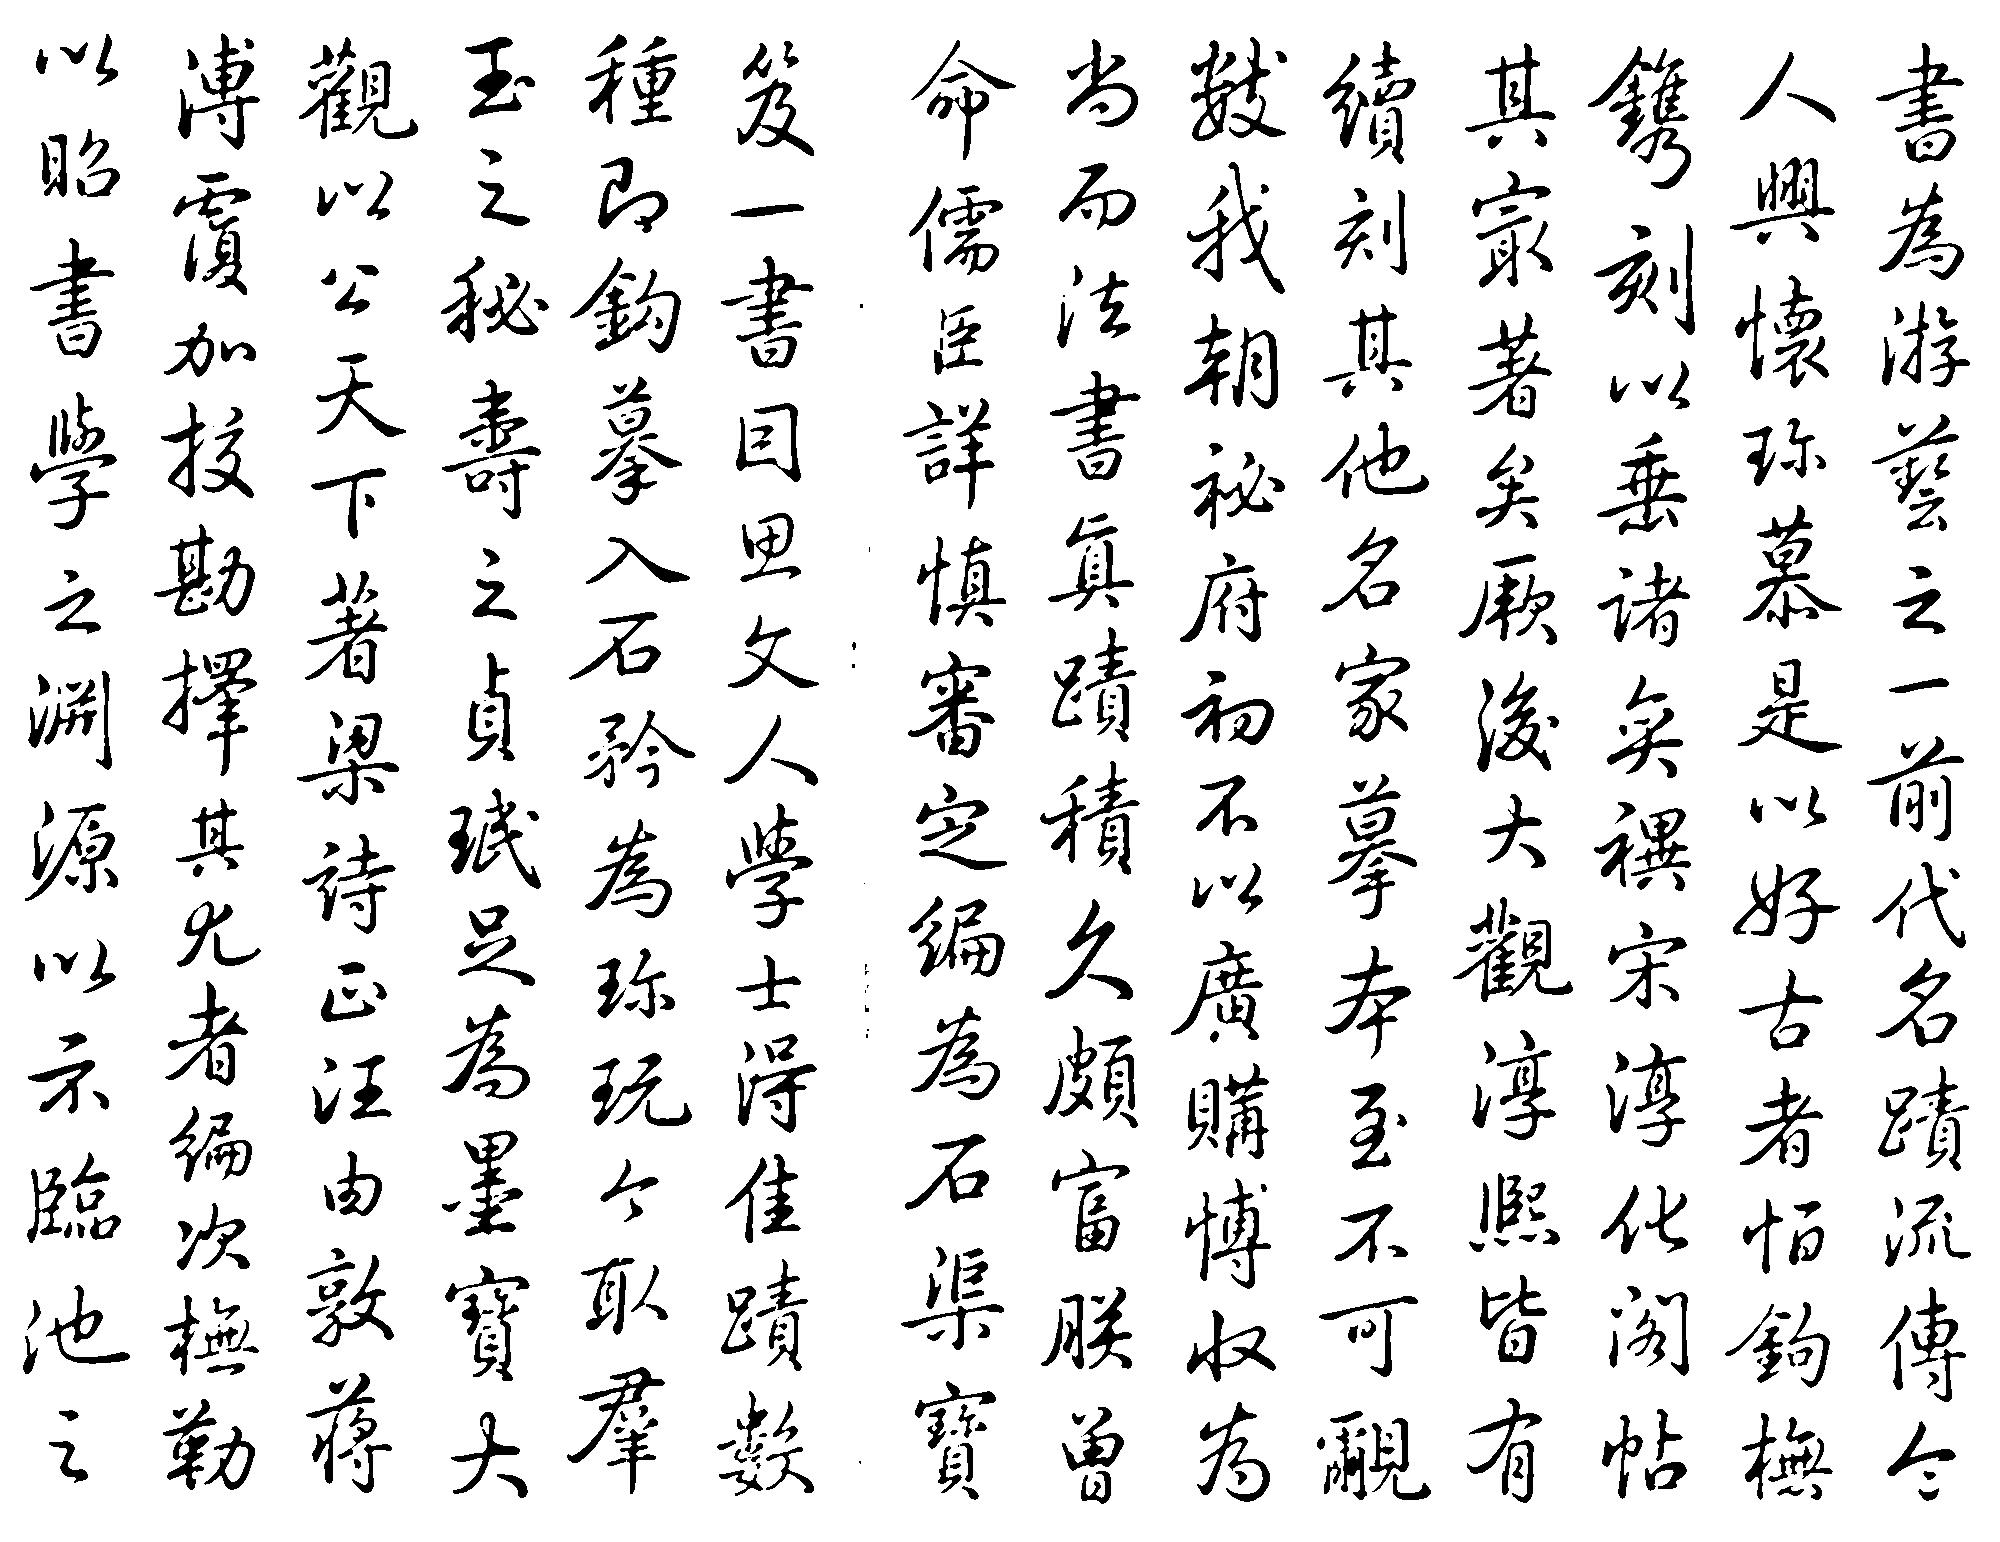 書為游藝之一前代名蹟流傳令
人興懷珎慕是以好古者怕鉤橅
鐫刻以垂諸奕禩宋淳化閣帖
其冣著矣厥後大觀淳熙皆有
續刻其他名家摹本至不可覼
數我朝祕府初不以廣購博收為
尚而法書真蹟積久頗富朕曾
命儒臣詳慎審定編為石渠寶
笈一書因思文人學士得佳蹟數
種即鉤摹入石矜為珎玩今取羣
玉之秘壽之貞珉足為墨寶大
觀以公天下著梁詩正汪由敦蔣
溥覆加挍勘擇其尤者編次橅勒
以昭書學之淵源以示臨池之